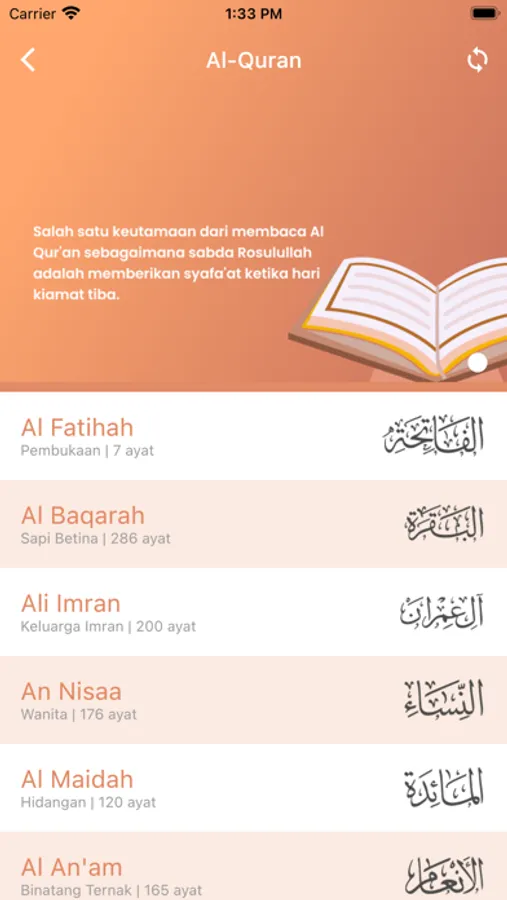 Carrier 1:33 PM
Al-Quran
Salah satu keutamaan dari membaca Al
Qur'an sebagaimana sabda Rosulullah
adalah memberikan syafa'at ketika hari
kiamat tiba.
Al Fatihah الفَاتِحَة
Pembukaan | 7 ayat
Al Baqarah البَقَرَة
Sapi Betina | 286 ayat
Ali Imran آل عِمْرَان
Keluarga Imran | 200 ayat
An Nisaa النِّسَاء
Wanita | 176 ayat
Al Maidah المَائدَة
Hidangan | 120 ayat
Al An'am الأنْعَام
Binatang Ternak | 165 ayat